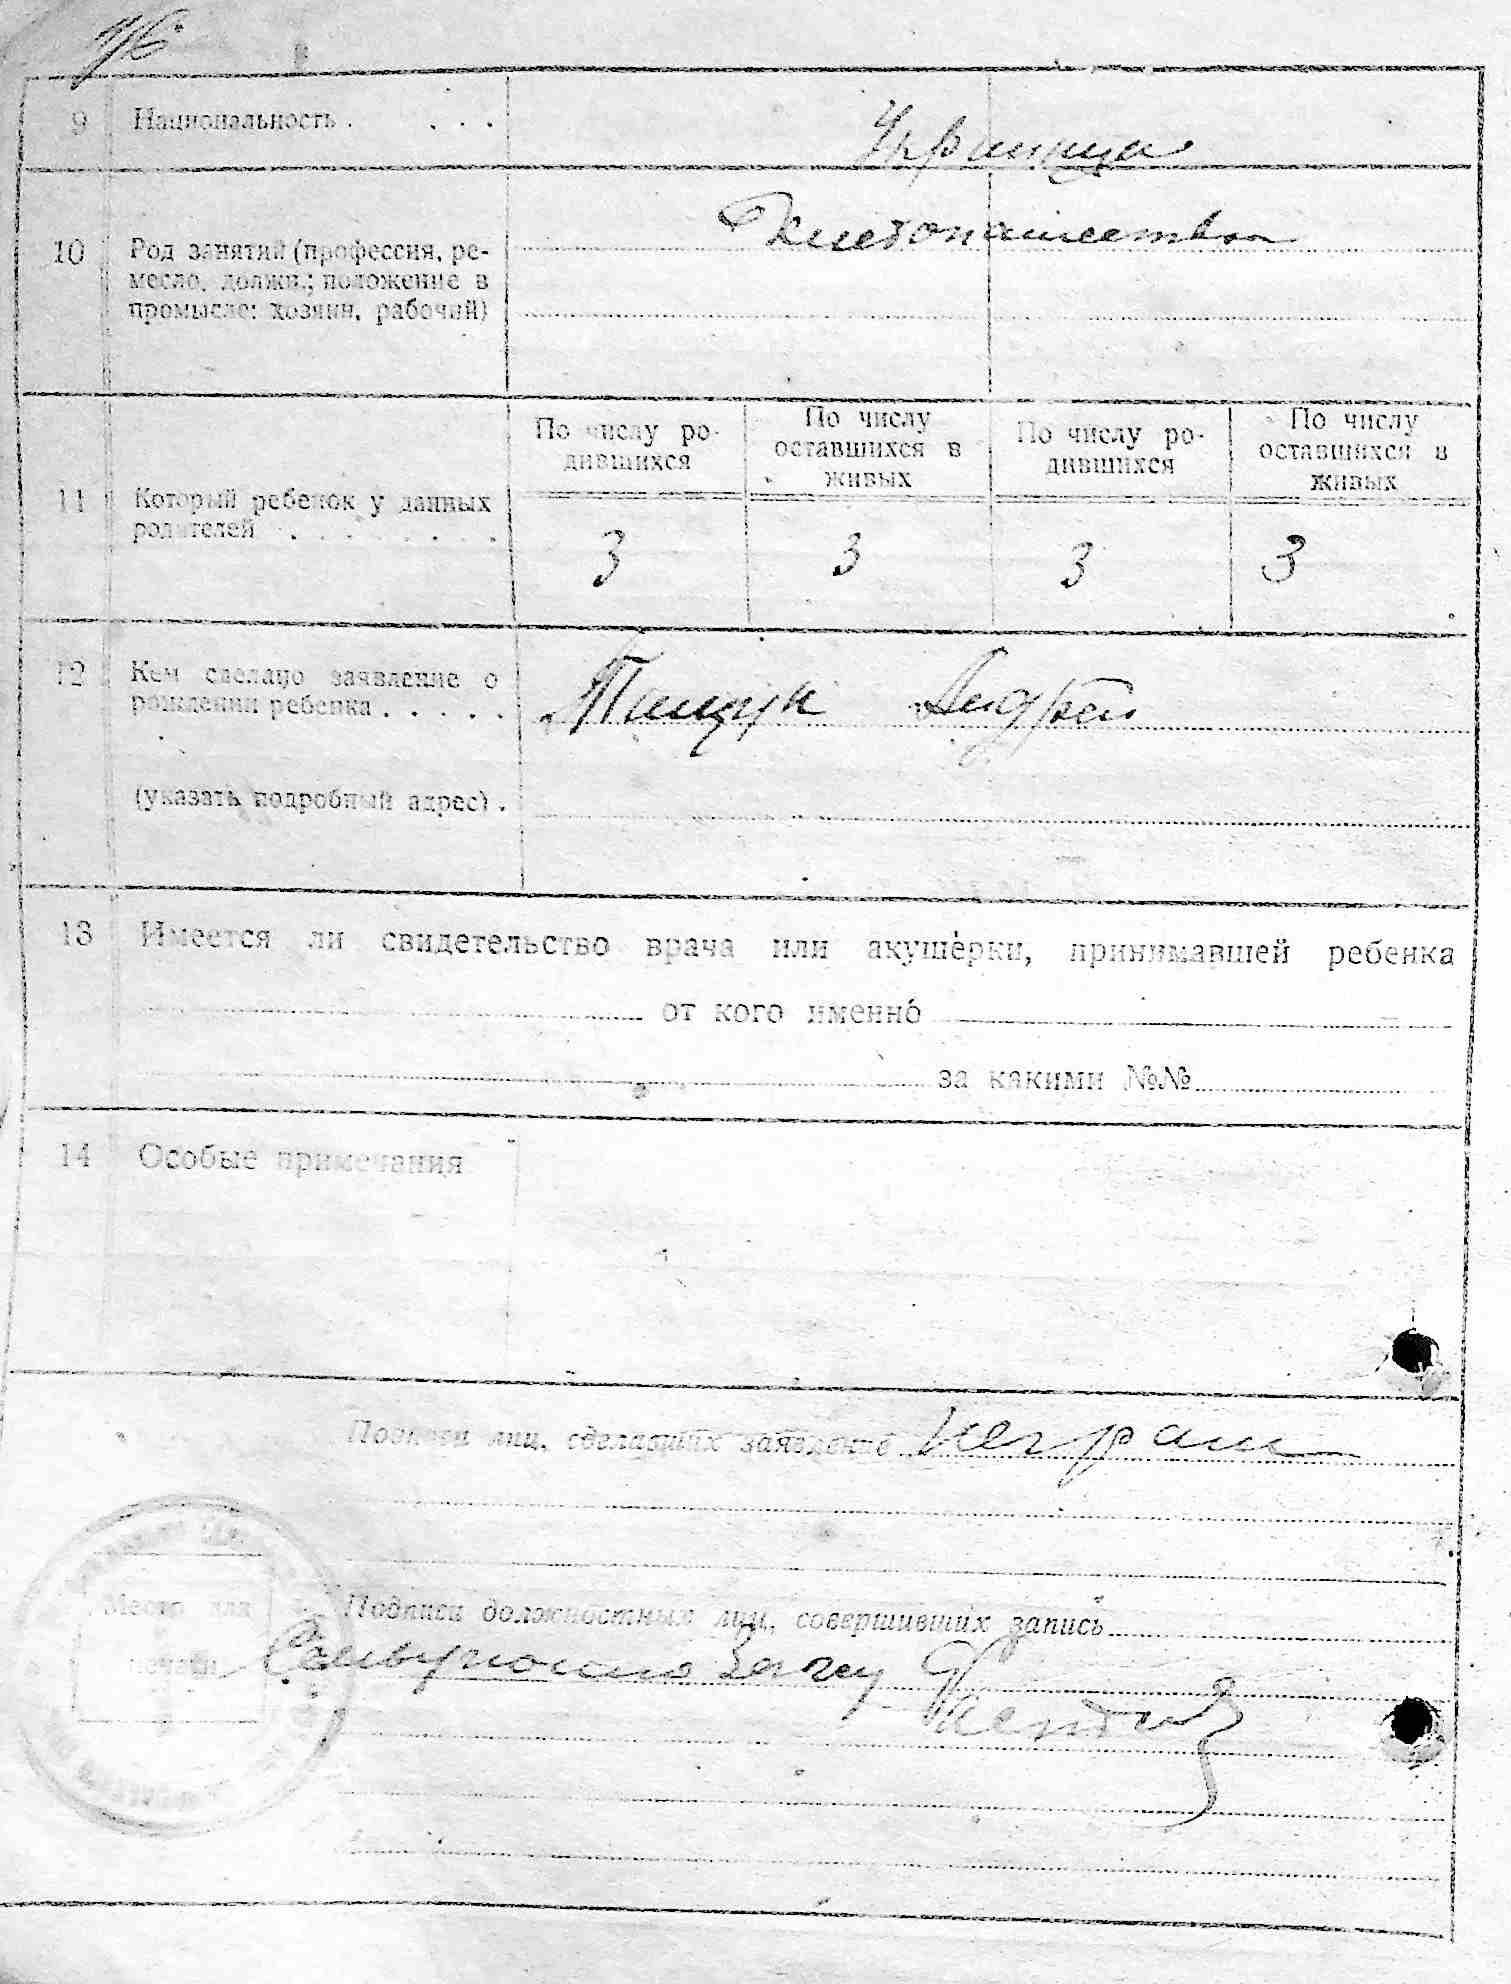 9 Национальность . . . .
Украинци
10 Род занятий (профессия, ре-
месло, должн.; положение в
промысле: хозяин, рабочий)
Хлебопашество
11 Который ребенок у данных
родителей . . . . . . . .
По числу ро-
дившихся
По числу
оставшихся в
живых
По числу ро-
дившихся
По числу
оставшихся в
живых
3 3 3 3
12 Кем сделано заявление о
рождении ребенка . . . . .
Пащук Андрей
(указать подробный адрес) .
13 Имеется ли свидетельство врача или акушёрки, принимавшей ребенка
от кого именно́
за какими №№
14 Особые примечания
Подписи лиц, сделавших заявление Неграм
Подписи должностных лиц, совершивших запись
Место для
печати